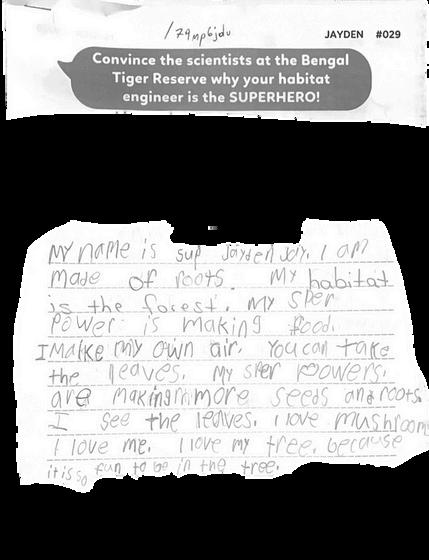 /79mp6jdu
JAYDEN #029
Convince the scientists at the Bengal
Tiger Reserve why your habitat
engineer is the SUPERHERO!
My name is sup Jayden Jay. I am
made of roots. My habitat
is the forest. My sper
Power is making food.
I make my own air. You can take
the leaves. My sper powers.
are making more seeds and roots
I see the leaves. I love mushroom
I love me. I love my tree. because
it is so fun to be in the tree.